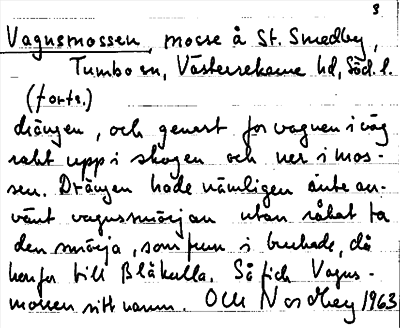 3
Vagnsmossen, mosse å St. Smedby,
Tumbo sn, Västerrekarne hd, Söd. l.
(forts.)
drängen, och genast for vagnen iväg
rakt upp i skogen och ner i mos-
sen. Drängen hade nämligen inte an-
vänt vagnsmörjan utan råkat ta
den smörja, som hon i brukade, då
hon for till Blåkulla. Så fick Vagns-
mossen sitt namn. Olle Nordberg 1963